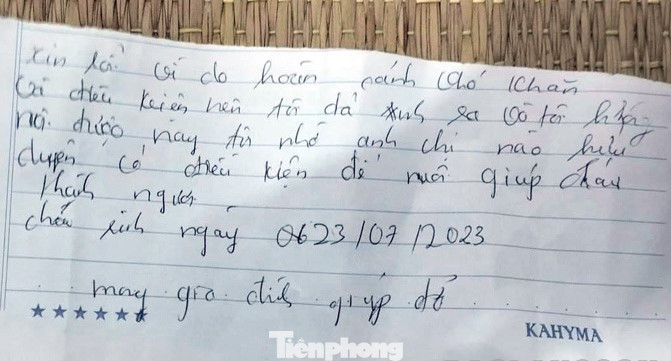 Tiênphong
xin lỗi vì do hoàn cảnh khó khăn
vì điều kiện nên tôi đã sinh ra
nổi được này tôi nhờ anh chị nào hữu
duyên có điều kiện để nuôi giúp cháu
thành người
cháu sinh ngày 0623/07/2023
mong gia đình giúp đỡ
KAHYMA
Tiênphong